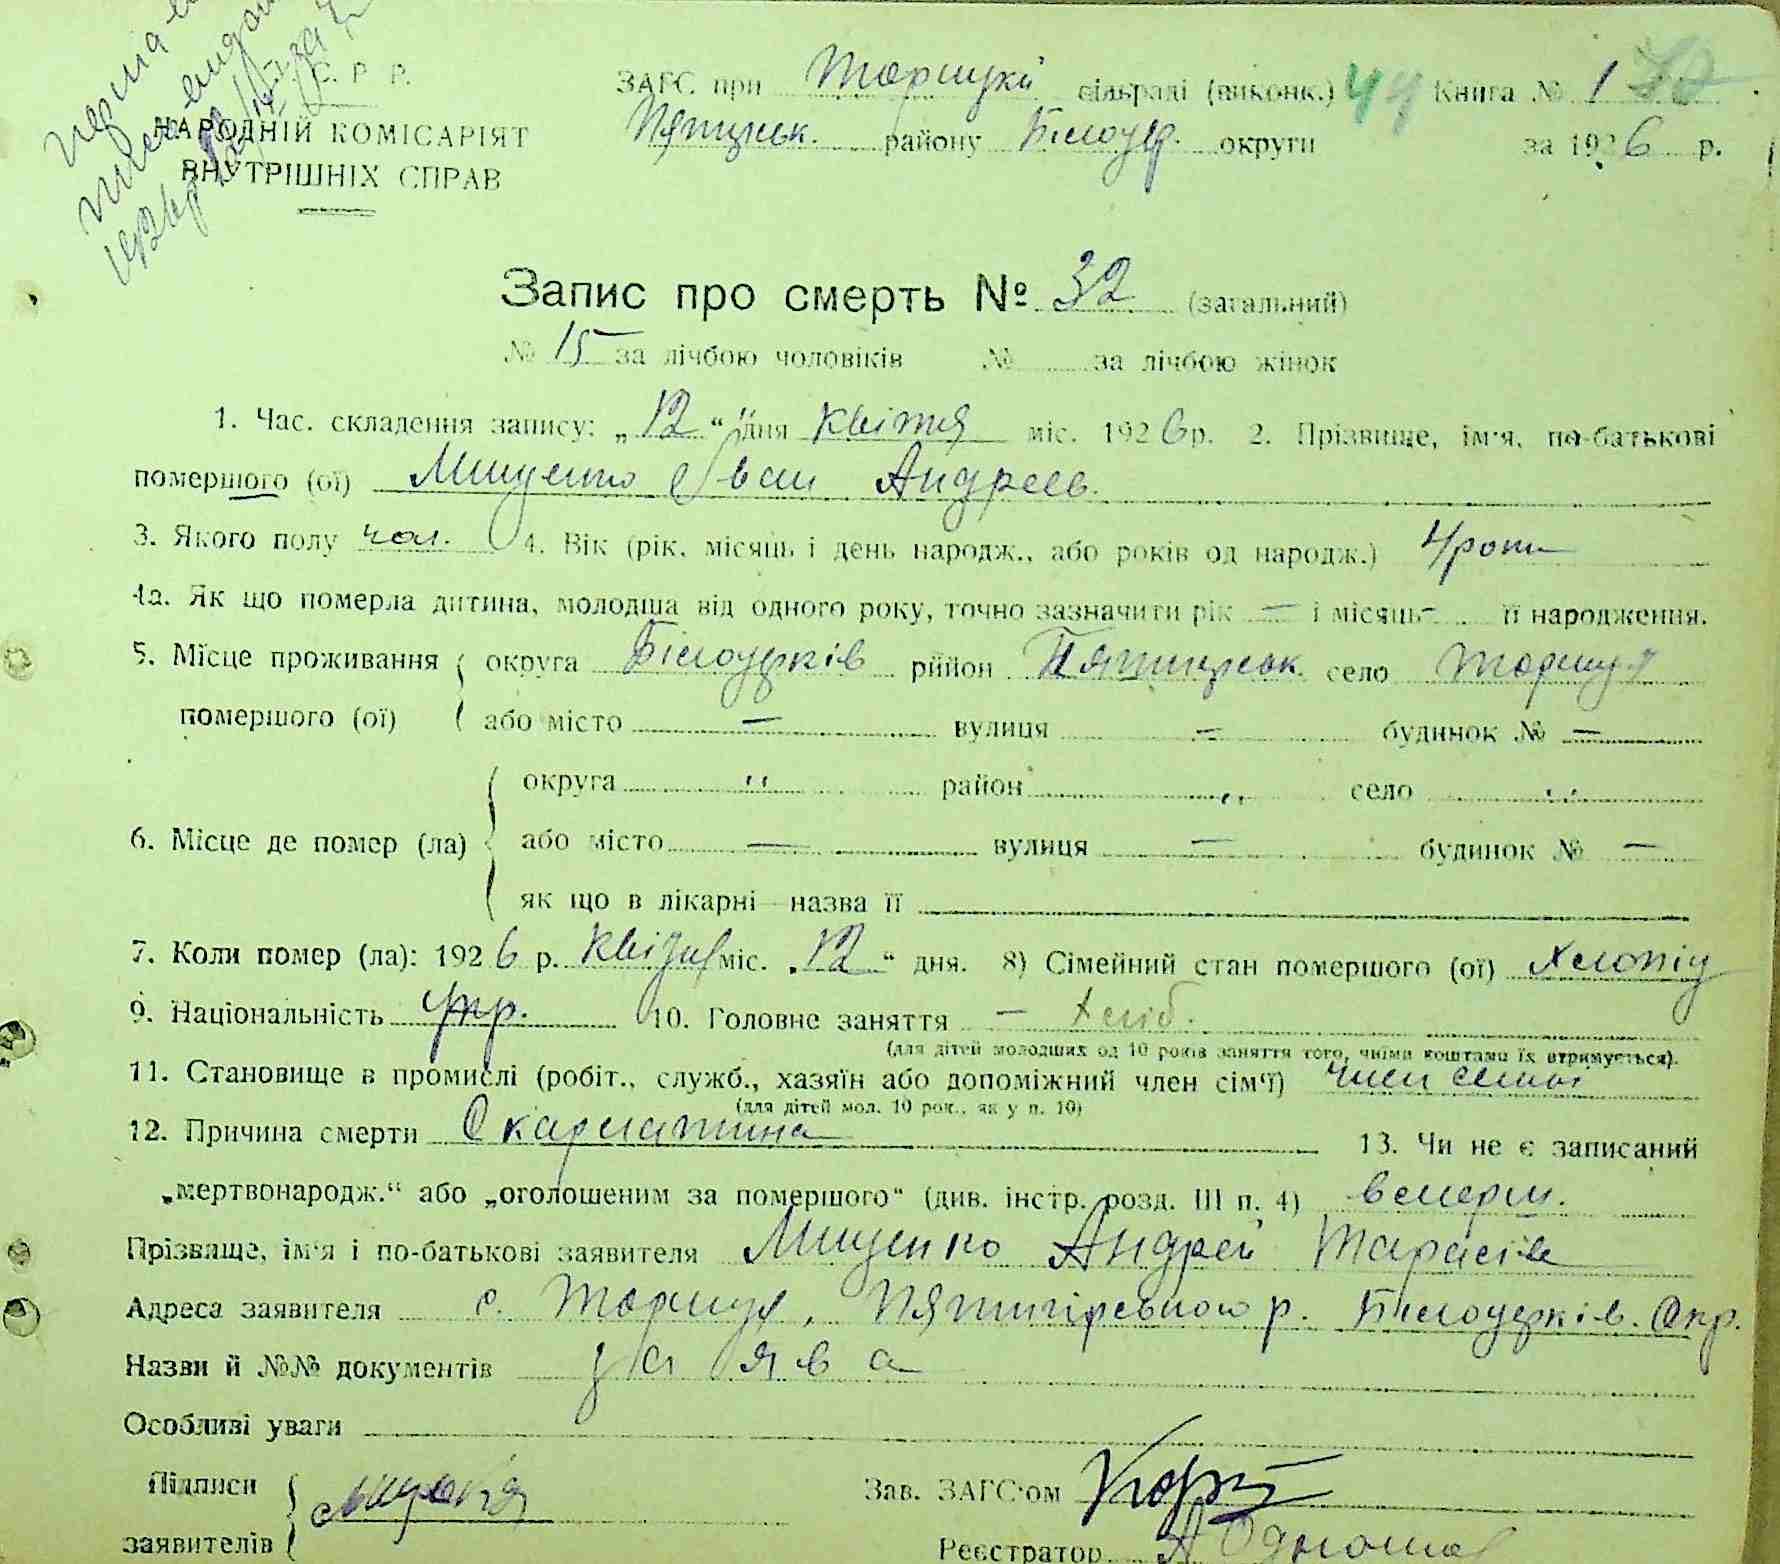 С. Р. Р.
НАРОДНІЙ КОМІСАРІЯТ
ВНУТРІШНІХ СПРАВ
ЗАГС при Торицькій сільраді (виконк.) 44 Книга № 1
району Білоцер. округи за 1926 р.
Запис про смерть № 32 (загальний)
№ 15 за лічбою чоловіків № за лічбою жінок
1. Час. складення запису: „12“ дня квітня міс. 1926 р. 2. Прізвище, ім'я, по-батькові
помершого (ої) Мищенко Іван Андреев.
3. Якого полу чол. 4. Вік (рік, місяць і день народж., або років од народж.) 4 роки
4а. Як що померла дитина, молодша від одного року, точно зазначити рік — і місяць — її народження.
5. Місце проживання округа Білоцрків рййон село Торица
помершого (ої) або місто — вулиця — будинок № —
округа " район " село "
6. Місце де помер (ла) або місто — вулиця — будинок № —
як що в лікарні—назва її
7. Коли помер (ла): 1926 р. міс. „12“ дня. 8) Сімейний стан помершого (ої) хлопіц
9. Національність укр. 10. Головне заняття — хліб.
(для дітей молодших од 10 років заняття того, чиїми коштами їх втримується).
11. Становище в промислі (робіт., служб., хазяїн або допоміжний член сім'ї) член семьи
(для дітей мол. 10 рок., як у п. 10)
12. Причина смерти Скарлатина 13. Чи не є записаний
„мертвонародж.“ або „оголошеним за помершого“ (див. інстр. розд. III п. 4)
Прізвище, ім'я і по-батькові заявителя Мищенко Андрей Тарасів
Адреса заявителя с. Торица, р. Білоцрків. Окр.
Назви й №№ документів заява
Особливі уваги
Підписи
заявителів
Зав. ЗАГС'ом
Реєстратор